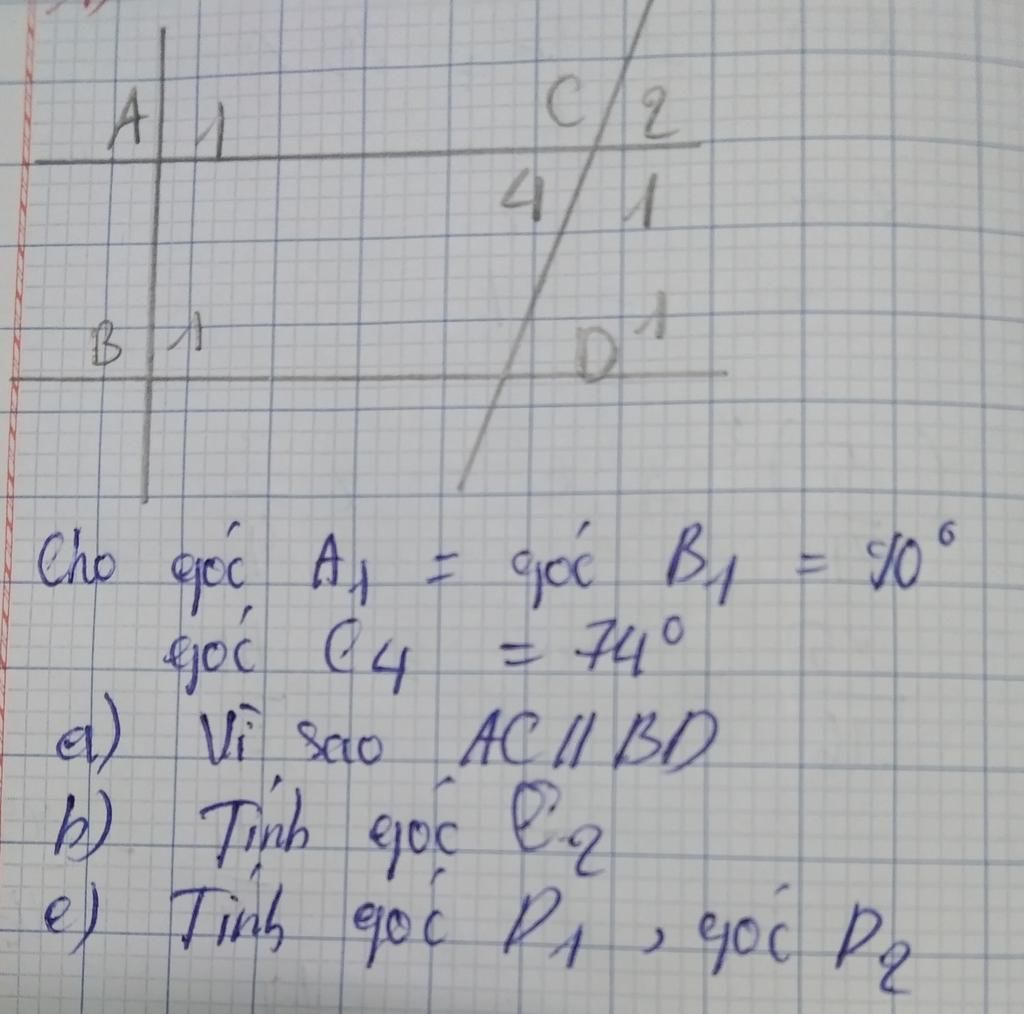 A 1 C 2
4 1
B 1 D 1
Cho góc A₁ = góc B₁ = 90°
góc C₄ = 74°
a) Vì sao AC // BD
b) Tính góc C₂
c) Tính góc D₁, góc D₂